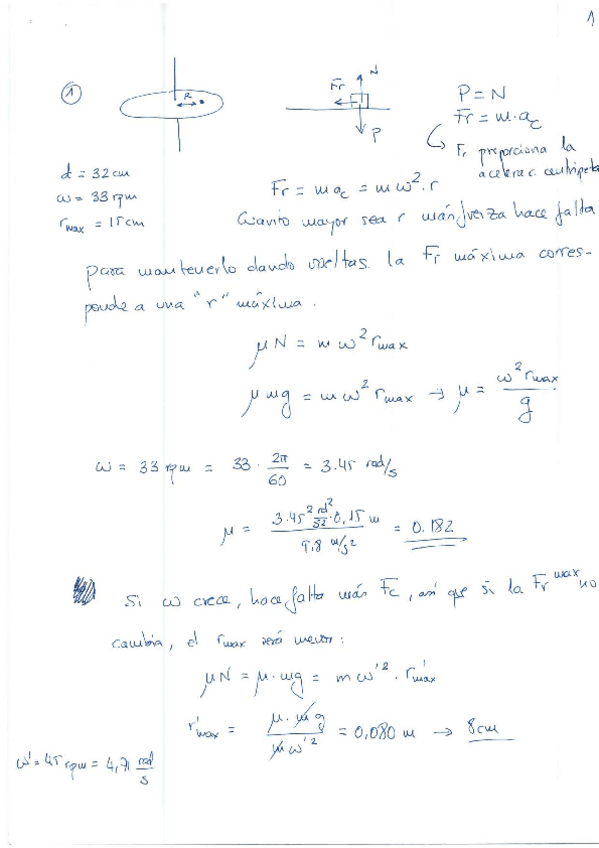 1
①
R
Fr
N
P
P = N
Fr = m·a_c
Fr proporciona la
acelerac centrípeta
d = 32 cm
ω = 33 rpm
r_max = 15 cm
Fr = m a_c = m ω²·r
Cuanto mayor sea r más fuerza hace falta
para mantenerlo dando vueltas. la Fr máxima corres-
ponde a una "r" máxima.
μN = m ω² r_max
μ mg = m ω² r_max → μ = ω² r_max / g
ω = 33 rpm = 33 · 2π/60 = 3.45 rad/s
μ = 3.45² rd²/s² · 0,15 m / 9.8 m/s² = 0.182
Si ω crece, hace falta más Fc, así que si la Fr^max no
cambia, el r_max será menor:
μN = μ·mg = m ω'²·r'_max
r'_max = μ·m g / m ω'² = 0,080 m → 8 cm
ω' = 45 rpm = 4,71 rad/s